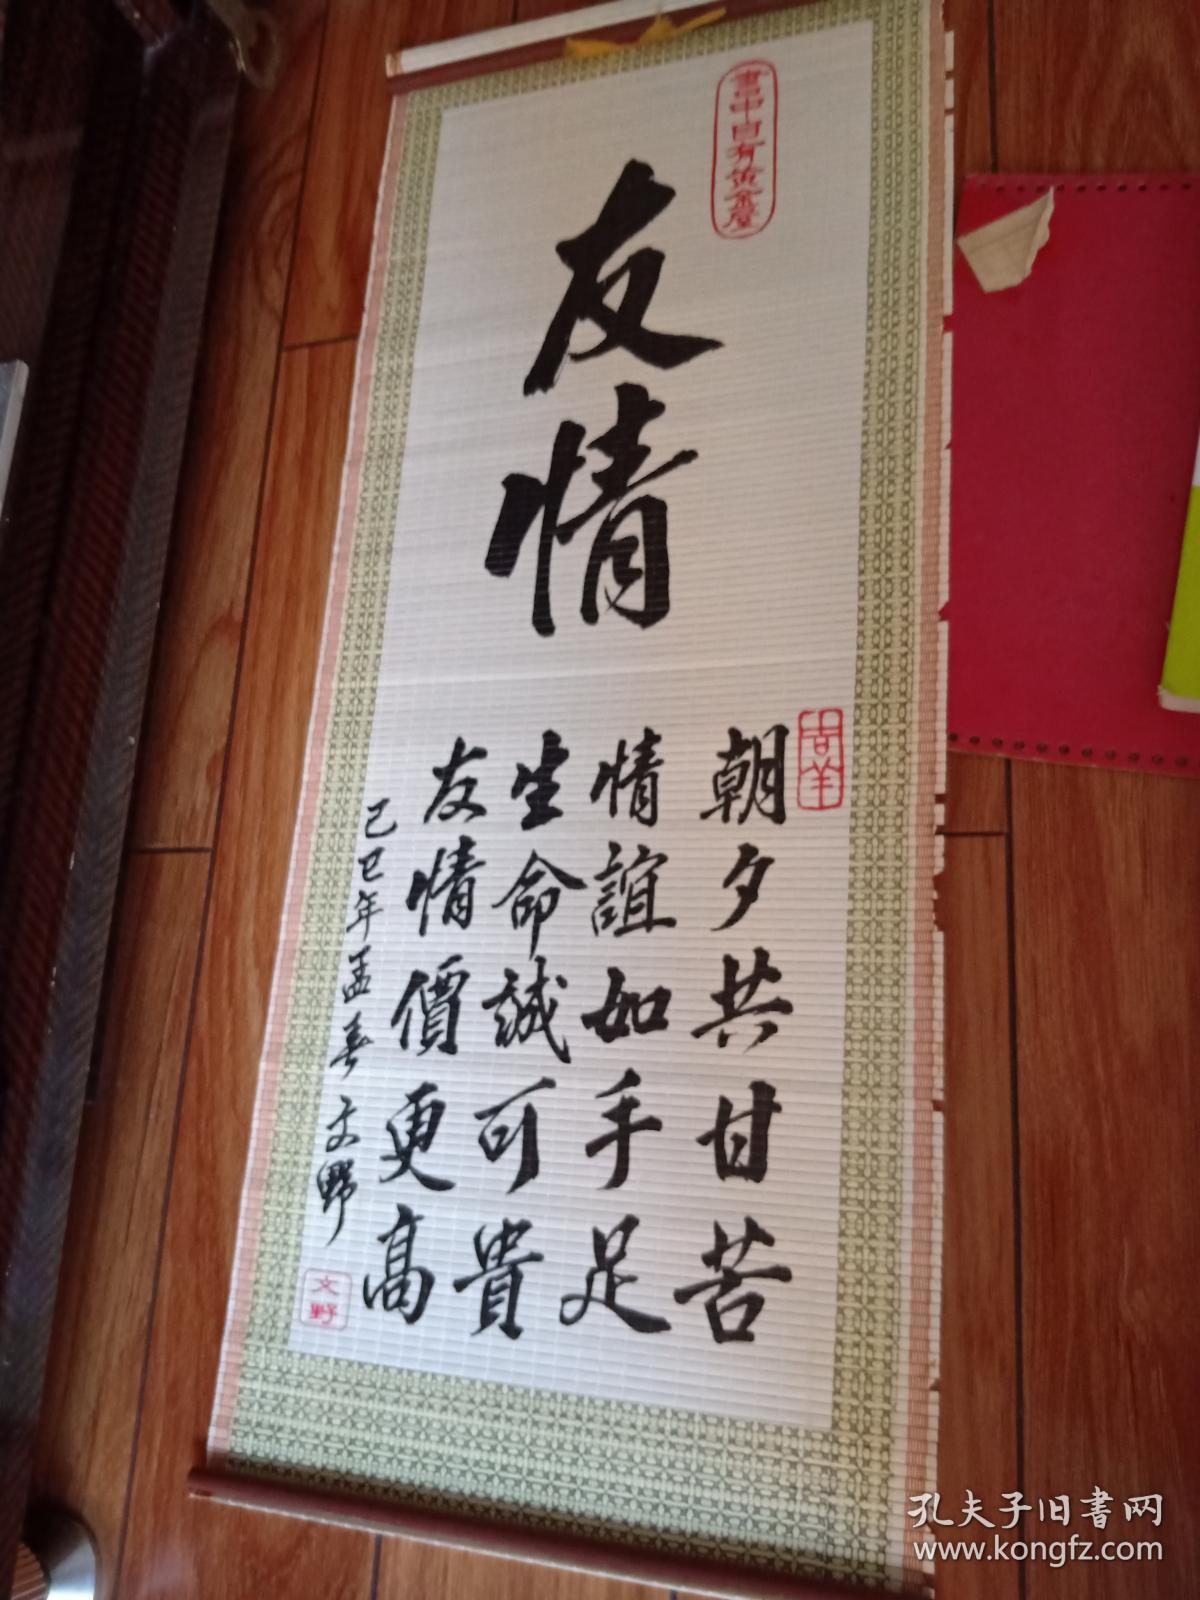 書中自有黃金屋
友情
朝夕共甘苦
情誼如手足
生命誠可貴
友情價更高
己巳年孟春文野
文野
孔夫子旧書网
www.kongfz.com